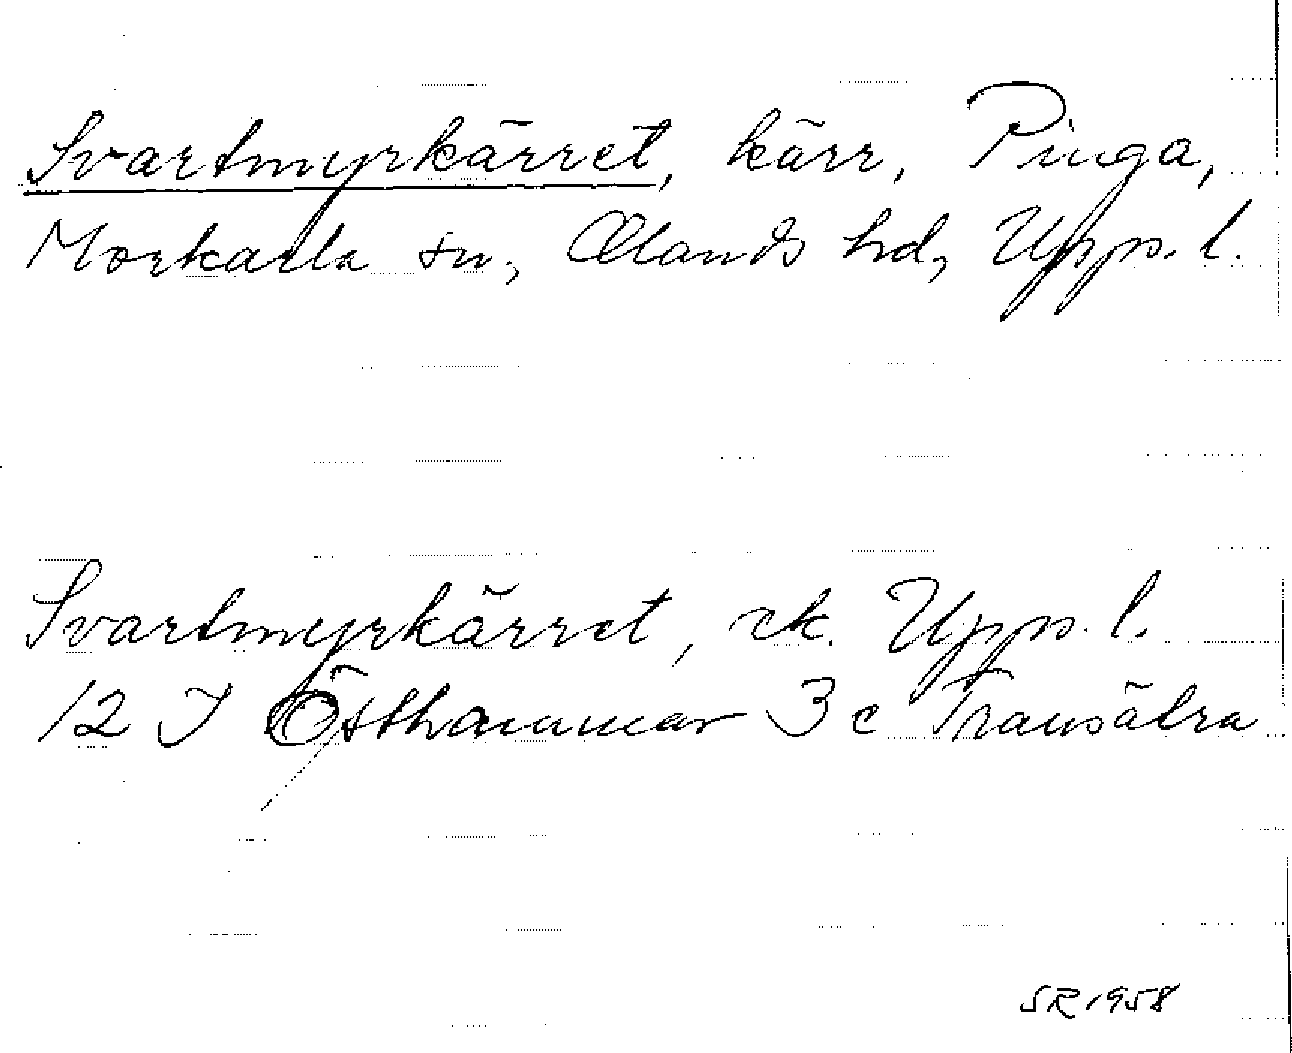 Svartmyrkärret, kärr, Pinga,
Morkarla sn, Olands hd, Uppl.
Svartmyrkärret, ek. Uppl.
12 I Östhammar 3 c Transätra
SR 1958